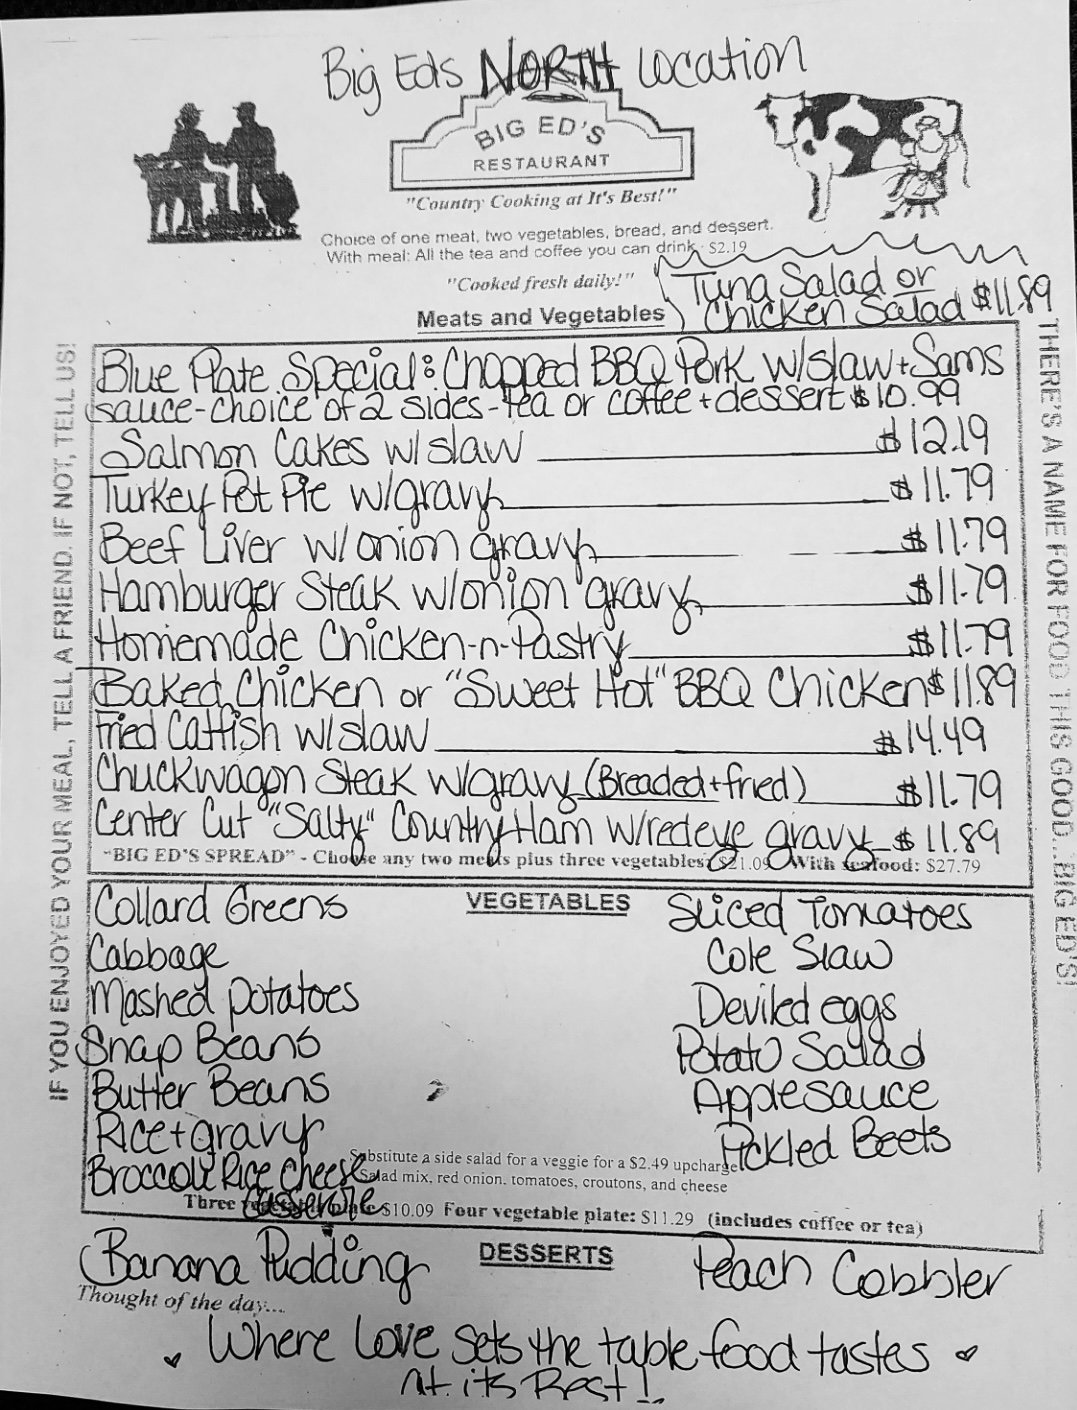 Big Eds NORTH Location
BIG ED'S
RESTAURANT
"Country Cooking at It's Best!"
Choice of one meat, two vegetables, bread, and dessert.
With meal: All the tea and coffee you can drink: $2.19
"Cooked fresh daily!"
Tuna Salad or
Chicken Salad $11.89
Meats and Vegetables
IF YOU ENJOYED YOUR MEAL, TELL A FRIEND. IF NOT, TELL US!
THERE'S A NAME FOR FOOD THIS GOOD...BIG ED'S!
Blue Plate Special: Chopped BBQ Pork w/slaw + Sams
sauce - choice of 2 sides - Tea or coffee + dessert $10.99
Salmon Cakes w/slaw $12.19
Turkey Pot Pie w/gravy $11.79
Beef Liver w/onion gravy $11.79
Hamburger Steak w/onion gravy $11.79
Homemade Chicken-n-Pastry $11.79
Baked Chicken or "Sweet Hot" BBQ Chicken $11.89
Fried Catfish w/slaw $14.49
Chuckwagon Steak w/gravy (Breaded + fried) $11.79
Center Cut "Salty" Country Ham w/redeye gravy $11.89
"BIG ED'S SPREAD" - Choose any two meats plus three vegetables: $21.09 With seafood: $27.79
VEGETABLES
Collard Greens
Cabbage
Mashed potatoes
Snap Beans
Butter Beans
Rice + gravy
Broccoli Rice Cheese
Casserole
Sliced Tomatoes
Cole Slaw
Deviled eggs
Potato Salad
Applesauce
Pickled Beets
Substitute a side salad for a veggie for a $2.49 upcharge
Salad mix, red onion, tomatoes, croutons, and cheese
Three $10.09 Four vegetable plate: $11.29 (includes coffee or tea)
DESSERTS
Banana Pudding
Peach Cobbler
Thought of the day...
Where Love sets the table food tastes
at its Best!